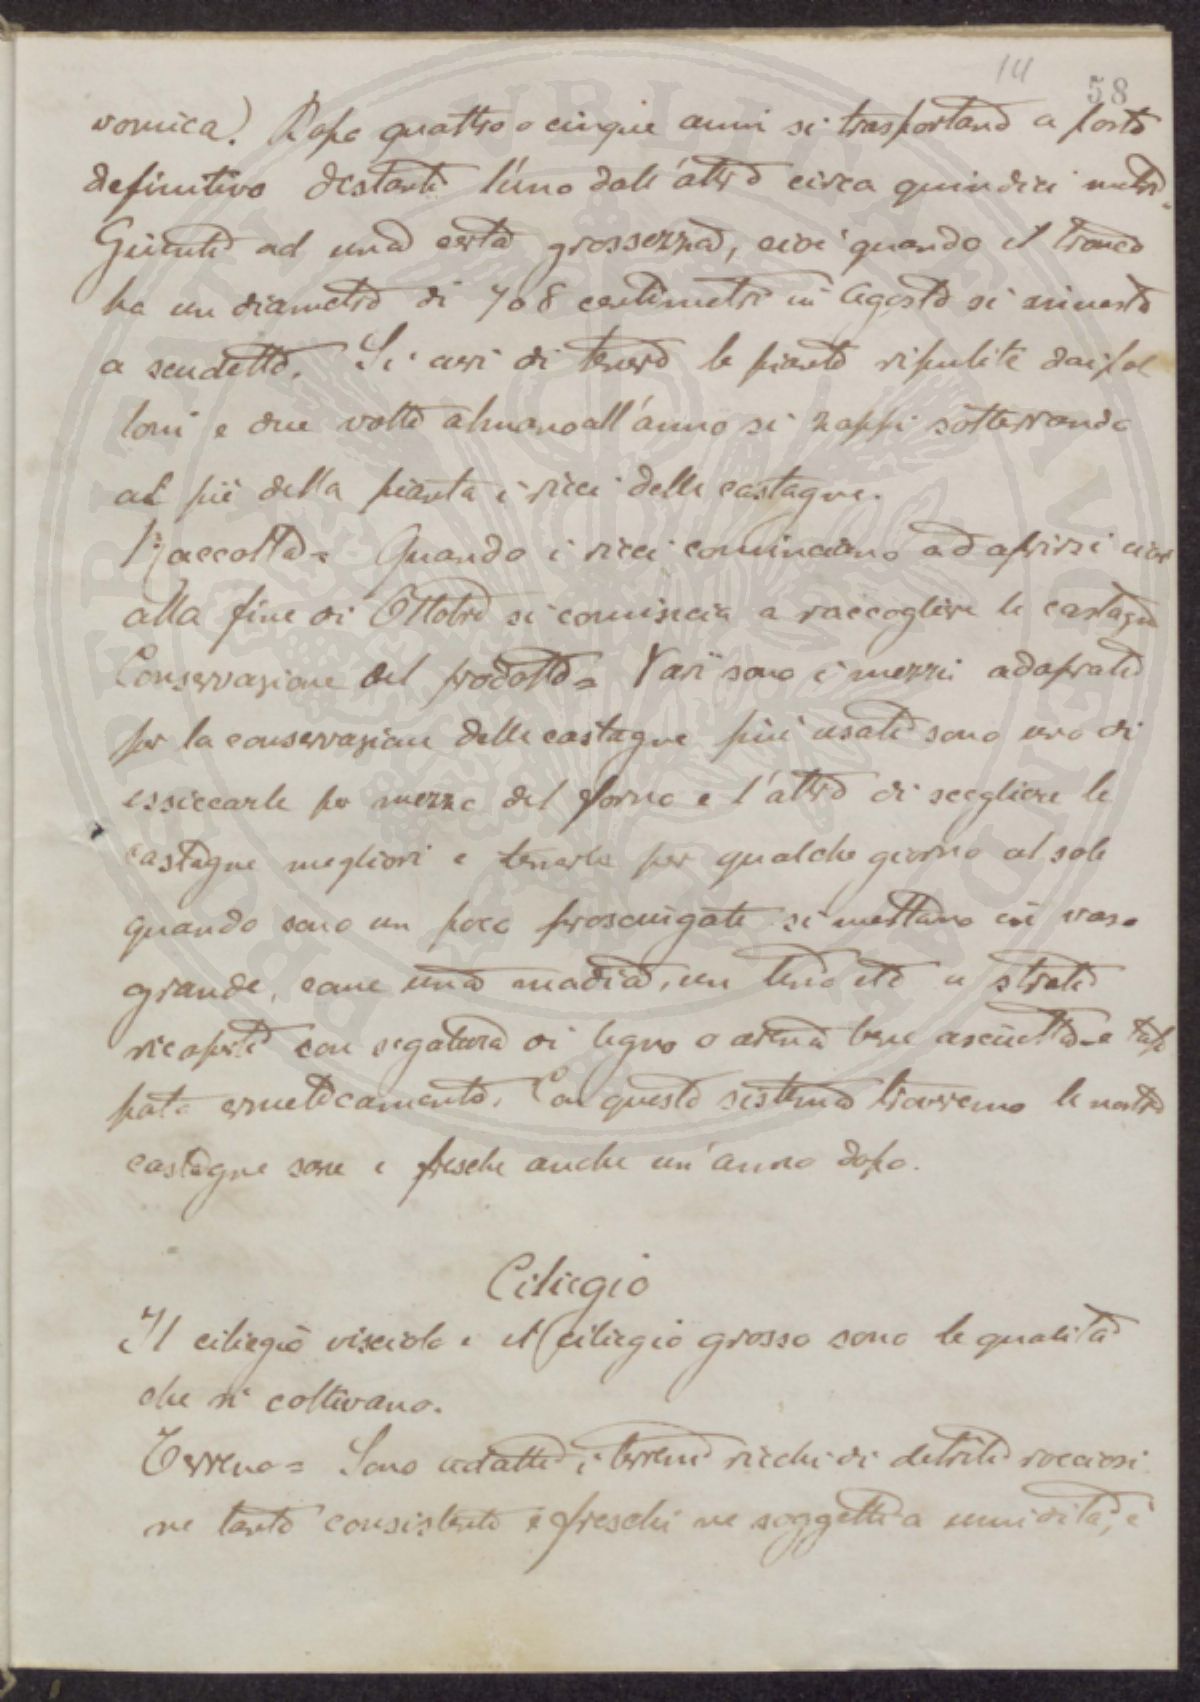 14
58
vomica). Dopo quattro o cinque anni si trasportano a posto
definitivo distanti l'uno dall'altro circa quindici metri.
Giunti ad una certa grossezza, cioè quando il tronco
ha un diametro di 7 o 8 centimetri in Agosto si innesta
a scudetto. Si curi di tenere le piante ripulite dai pol
loni e due volte almeno all'anno si zappi sotterrando
al piè della pianta i ricci delle castagne.
Raccolta = Quando i ricci cominciano ad aprirsi cioè
alla fine di Ottobre si comincia a raccogliere le castagne
Conservazione del prodotto = Varii sono i mezzi adoprati
per la conservazione delle castagne più usati sono uno di
essiccarle per mezzo del forno e l'altro di scegliere le
castagne megliori e tenerle per qualche giorno al sole
quando sono un poco prosciugate si mettano in vaso
grande, come una madia, un tino etc a strati
ricoperti con segatura di legno o arena bene asciutta e tap
pato ermeticamente. Con questo sistema troveremo le nostre
castagne sane e fresche anche un'anno dopo.
Ciliegio
Il ciliegio visciolo e il ciliegio grosso sono le qualità
che si coltivano.
Terreno = Sono adatti i terreni ricchi di detriti rocciosi
ne tanto consistenti e freschi ne soggetti a umidità, e